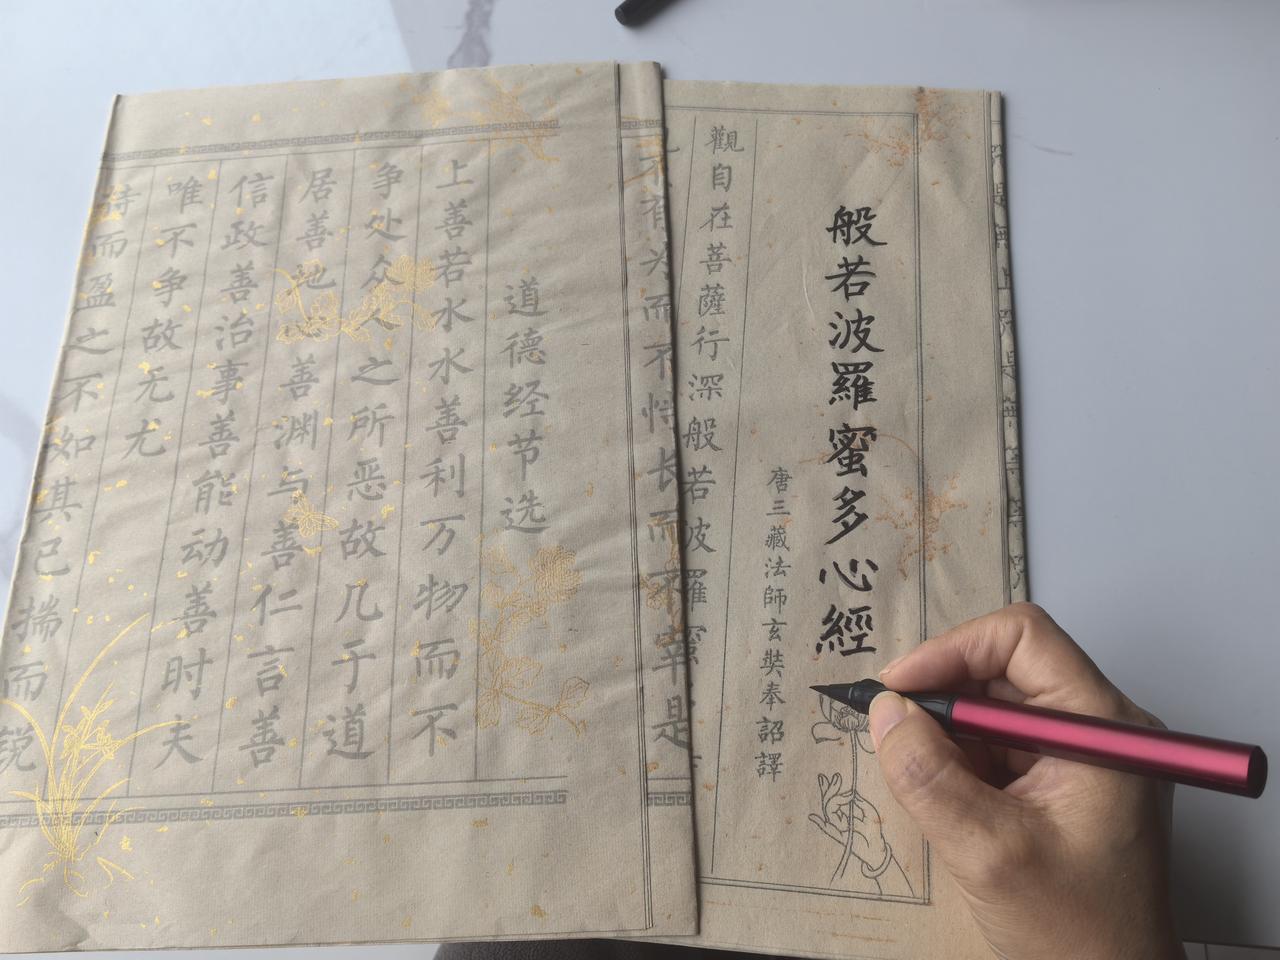 般若波羅蜜多心經
唐三藏法師玄奘奉詔譯
觀自在菩薩行深般若波羅蜜
不有为而不恃长而不宰是
道德经节选
上善若水水善利万物而不
争处众人之所恶故几于道
居善地心善渊与善仁言善
信政善治事善能动善时夫
唯不争故无尤
持而盈之不如其已揣而锐